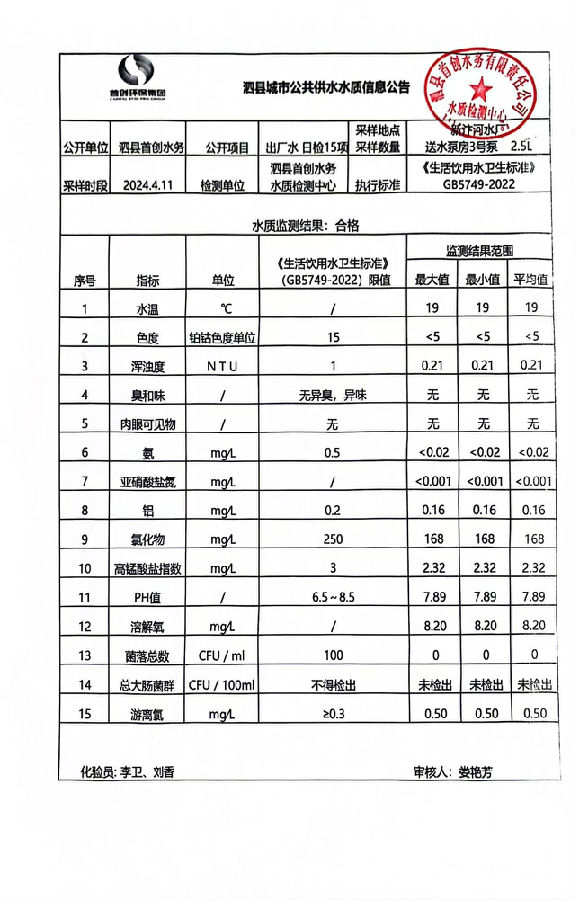 首创环保集团
泗县城市公共供水水质信息公告
泗县首创水务有限责任公司
水质检测中心
公开单位 泗县首创水务 公开项目 出厂水 日检15项 采样地点 采样数量 新汴河水厂 送水泵房3号泵 2.5L
采样时段 2024.4.11 检测单位 泗县首创水务 水质检测中心 执行标准 《生活饮用水卫生标准》 GB5749-2022
水质监测结果：合格
序号 指标 单位 《生活饮用水卫生标准》（GB5749-2022）限值 监测结果范围
最大值 最小值 平均值
1 水温 ℃ / 19 19 19
2 色度 铂钴色度单位 15 <5 <5 <5
3 浑浊度 NTU 1 0.21 0.21 0.21
4 臭和味 / 无异臭，异味 无 无 无
5 肉眼可见物 / 无 无 无 无
6 氨 mg/L 0.5 <0.02 <0.02 <0.02
7 亚硝酸盐氮 mg/L / <0.001 <0.001 <0.001
8 铝 mg/L 0.2 0.16 0.16 0.16
9 氯化物 mg/L 250 168 168 168
10 高锰酸盐指数 mg/L 3 2.32 2.32 2.32
11 PH值 / 6.5~8.5 7.89 7.89 7.89
12 溶解氧 mg/L / 8.20 8.20 8.20
13 菌落总数 CFU / ml 100 0 0 0
14 总大肠菌群 CFU / 100ml 不得检出 未检出 未检出 未检出
15 游离氯 mg/L ≥0.3 0.50 0.50 0.50
化验员：李卫、刘香 审核人：娄艳芳